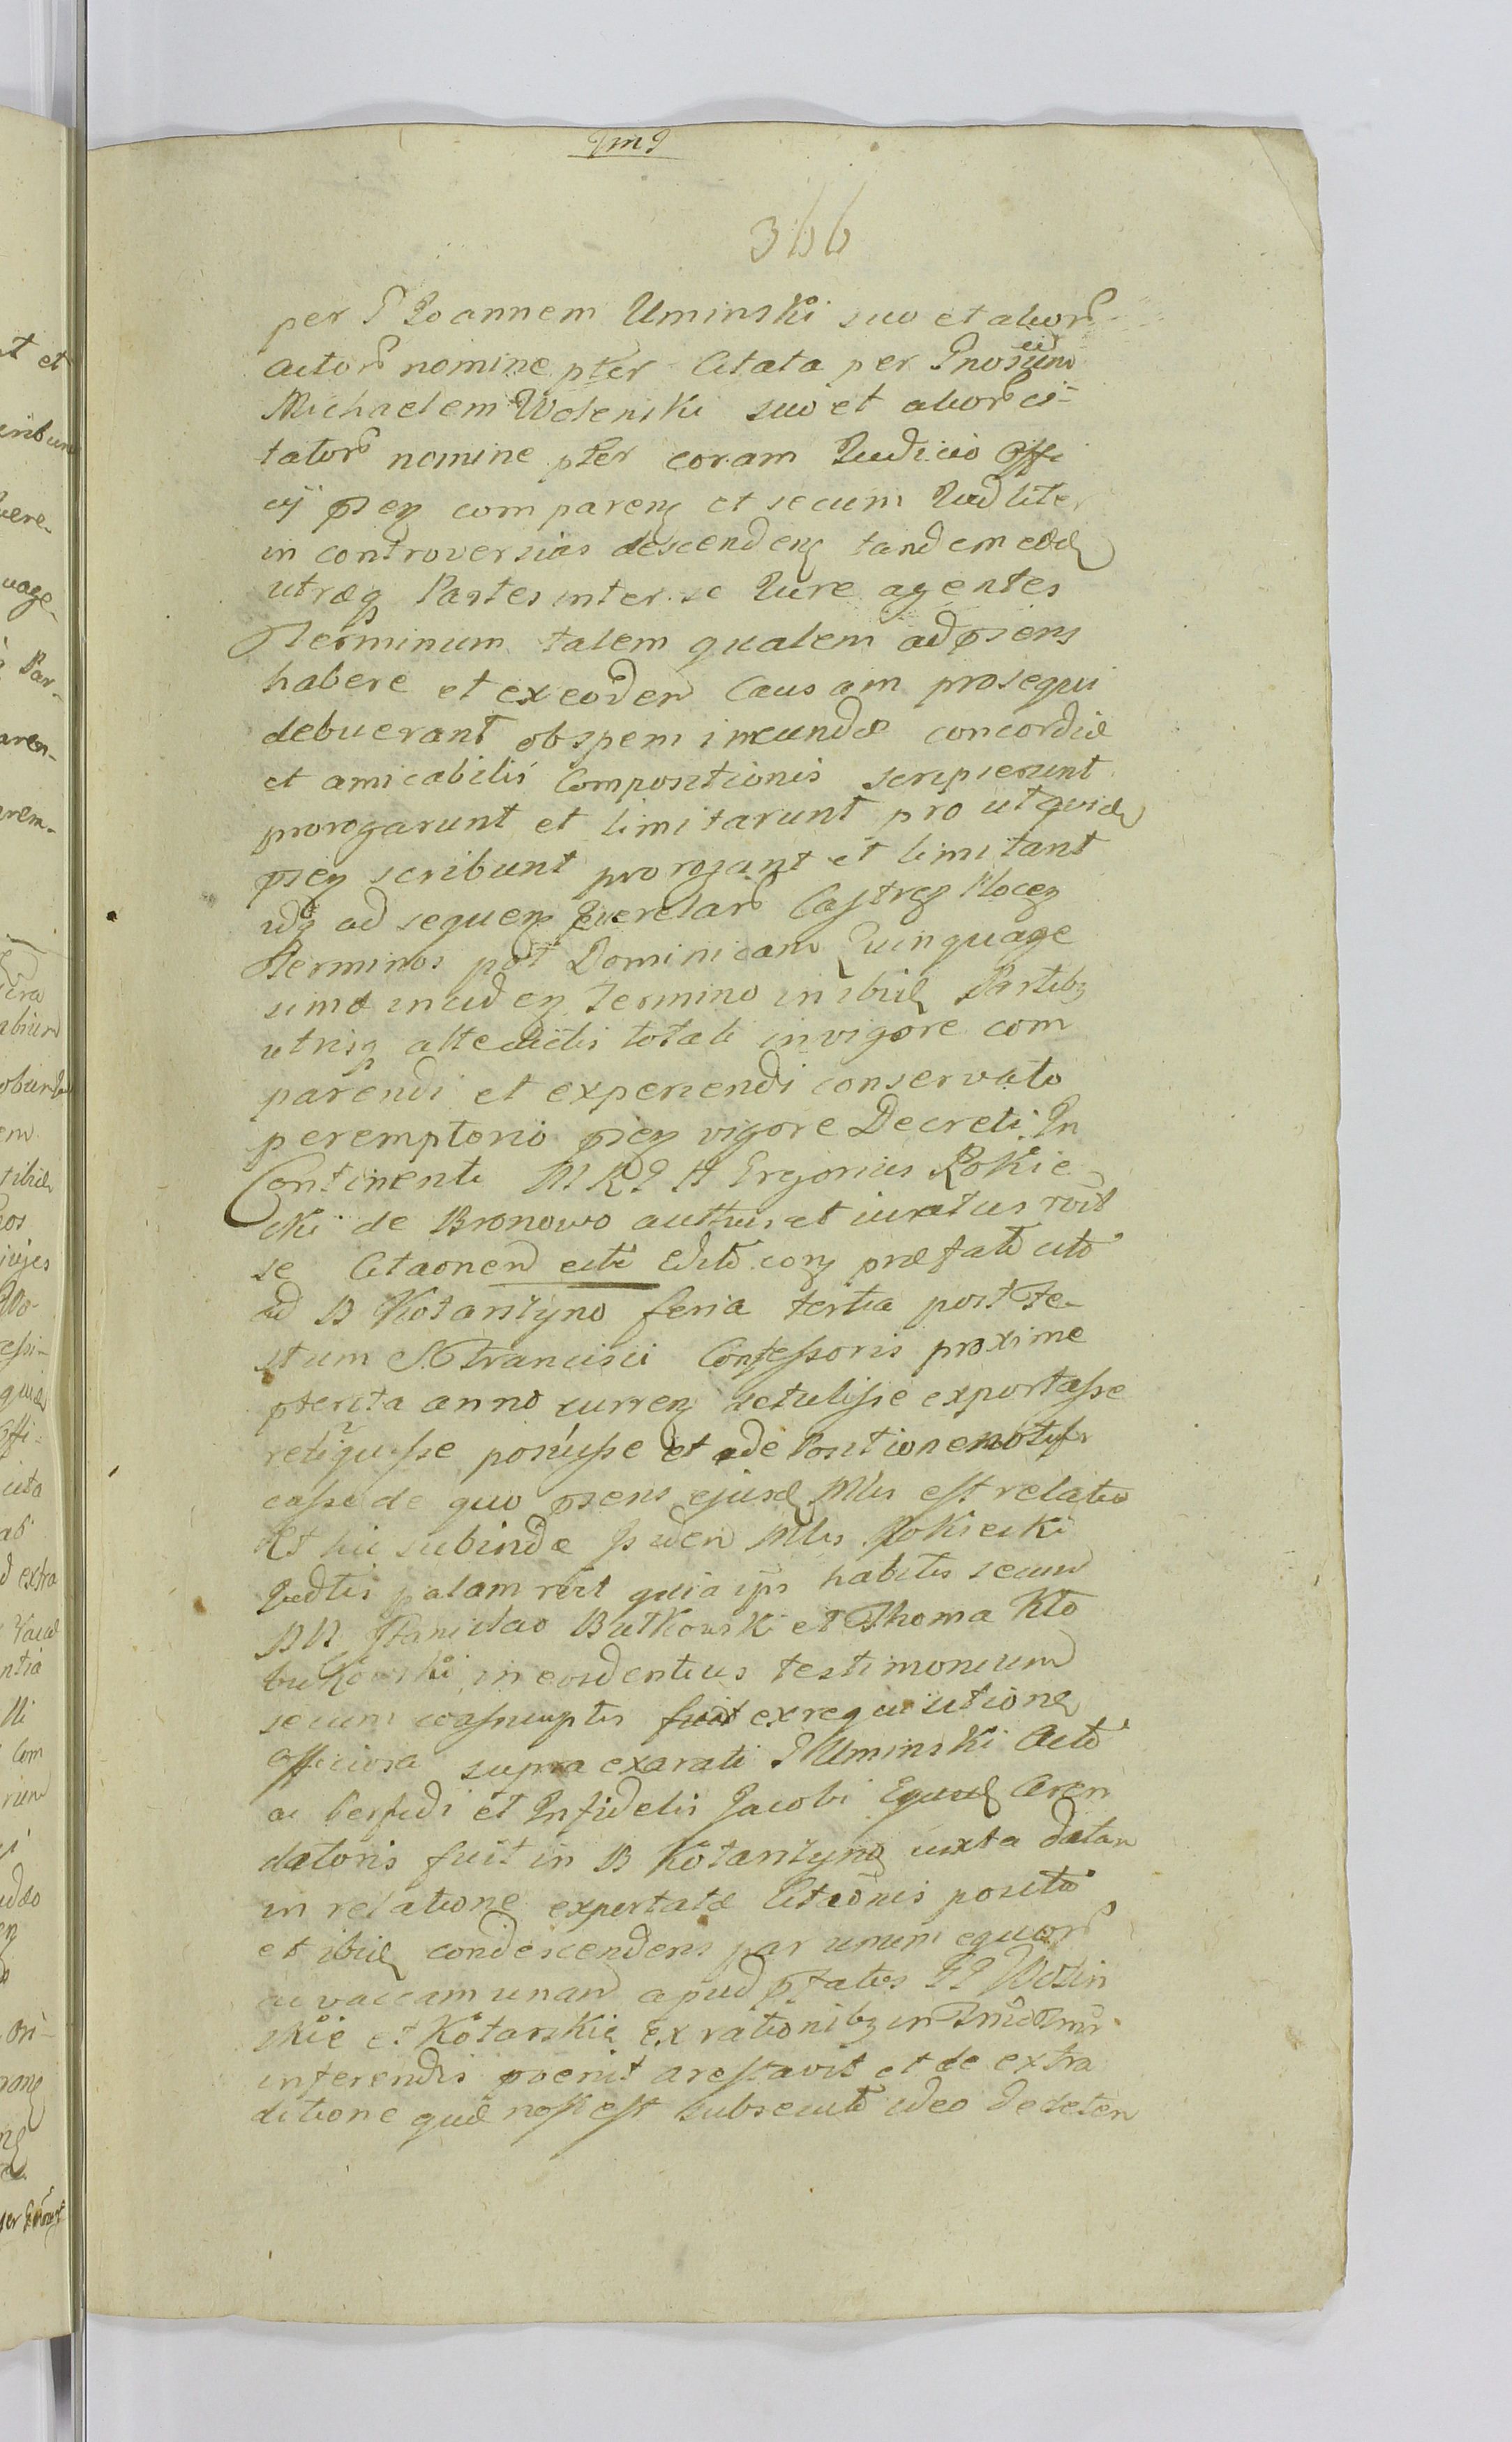 366
per G Joannem Uminski suo et alior
Actor nomine pter Citata per Gnosum
Michaelem Wolenski suo et alior ci-
tator nomine pter coram Judicio Offi
cÿ pseņ comparenς et secum Judliter
in controversias descendenς tandem
utræq Partes inter se Jure agentes
Terminum talem qualem ad psens
habere et ex eodem Causam prosequi
debuerant ob spem ineundæ concordiæ
et amicabilis Compositionis scripserunt
prorogarunt et limitarunt pro ut quidē
psen scribunt prorogant et limitant
ad sequen Querelar Castren Plocen
Terminos post Dominicam Quinquage
simæ inciden Termino inibiē Partibς
utrisq attedictis totali in vigore com
parendi et experiendi conservato
peremptorio psen vigore Decreti. In
Continenti M R G H Ergorius Rokie
cki de Bronowo authus et iuratus roit
se Citaonem edit præfato
ad B Kotarszyno feria tertia post Fe-
stum S Francisci Confessoris proxime
pterita anno curren detulisse exportasse
reliquisse posuisse et de Positione notifi
casse de quo psens ejusd Mlis est relatio
Et hic subinde idem Mlis Rokiecki
Judtis palam roit quia ips habitis secum
NN Stanislao Butkowski et Thoma Klo
bukowski in evidentius testimonium
secum coassumptis fuit ex requisitione
Officiosa supra exarati G Uminski Acto
ac Perfidi et Infidelis Jacobi Ejusd Aren
datoris fuit in B Kotarszyno iuxta datam
in relatione exportatæ Citaonis posito
et ibiē condescendens par unum equor
ac vaccam unam apud pfatos GG Wolin
skie et Kotarskie ex rationibς in
inferendis arestavit et de extra
ditione quæ non est subsecuta ideo de deten